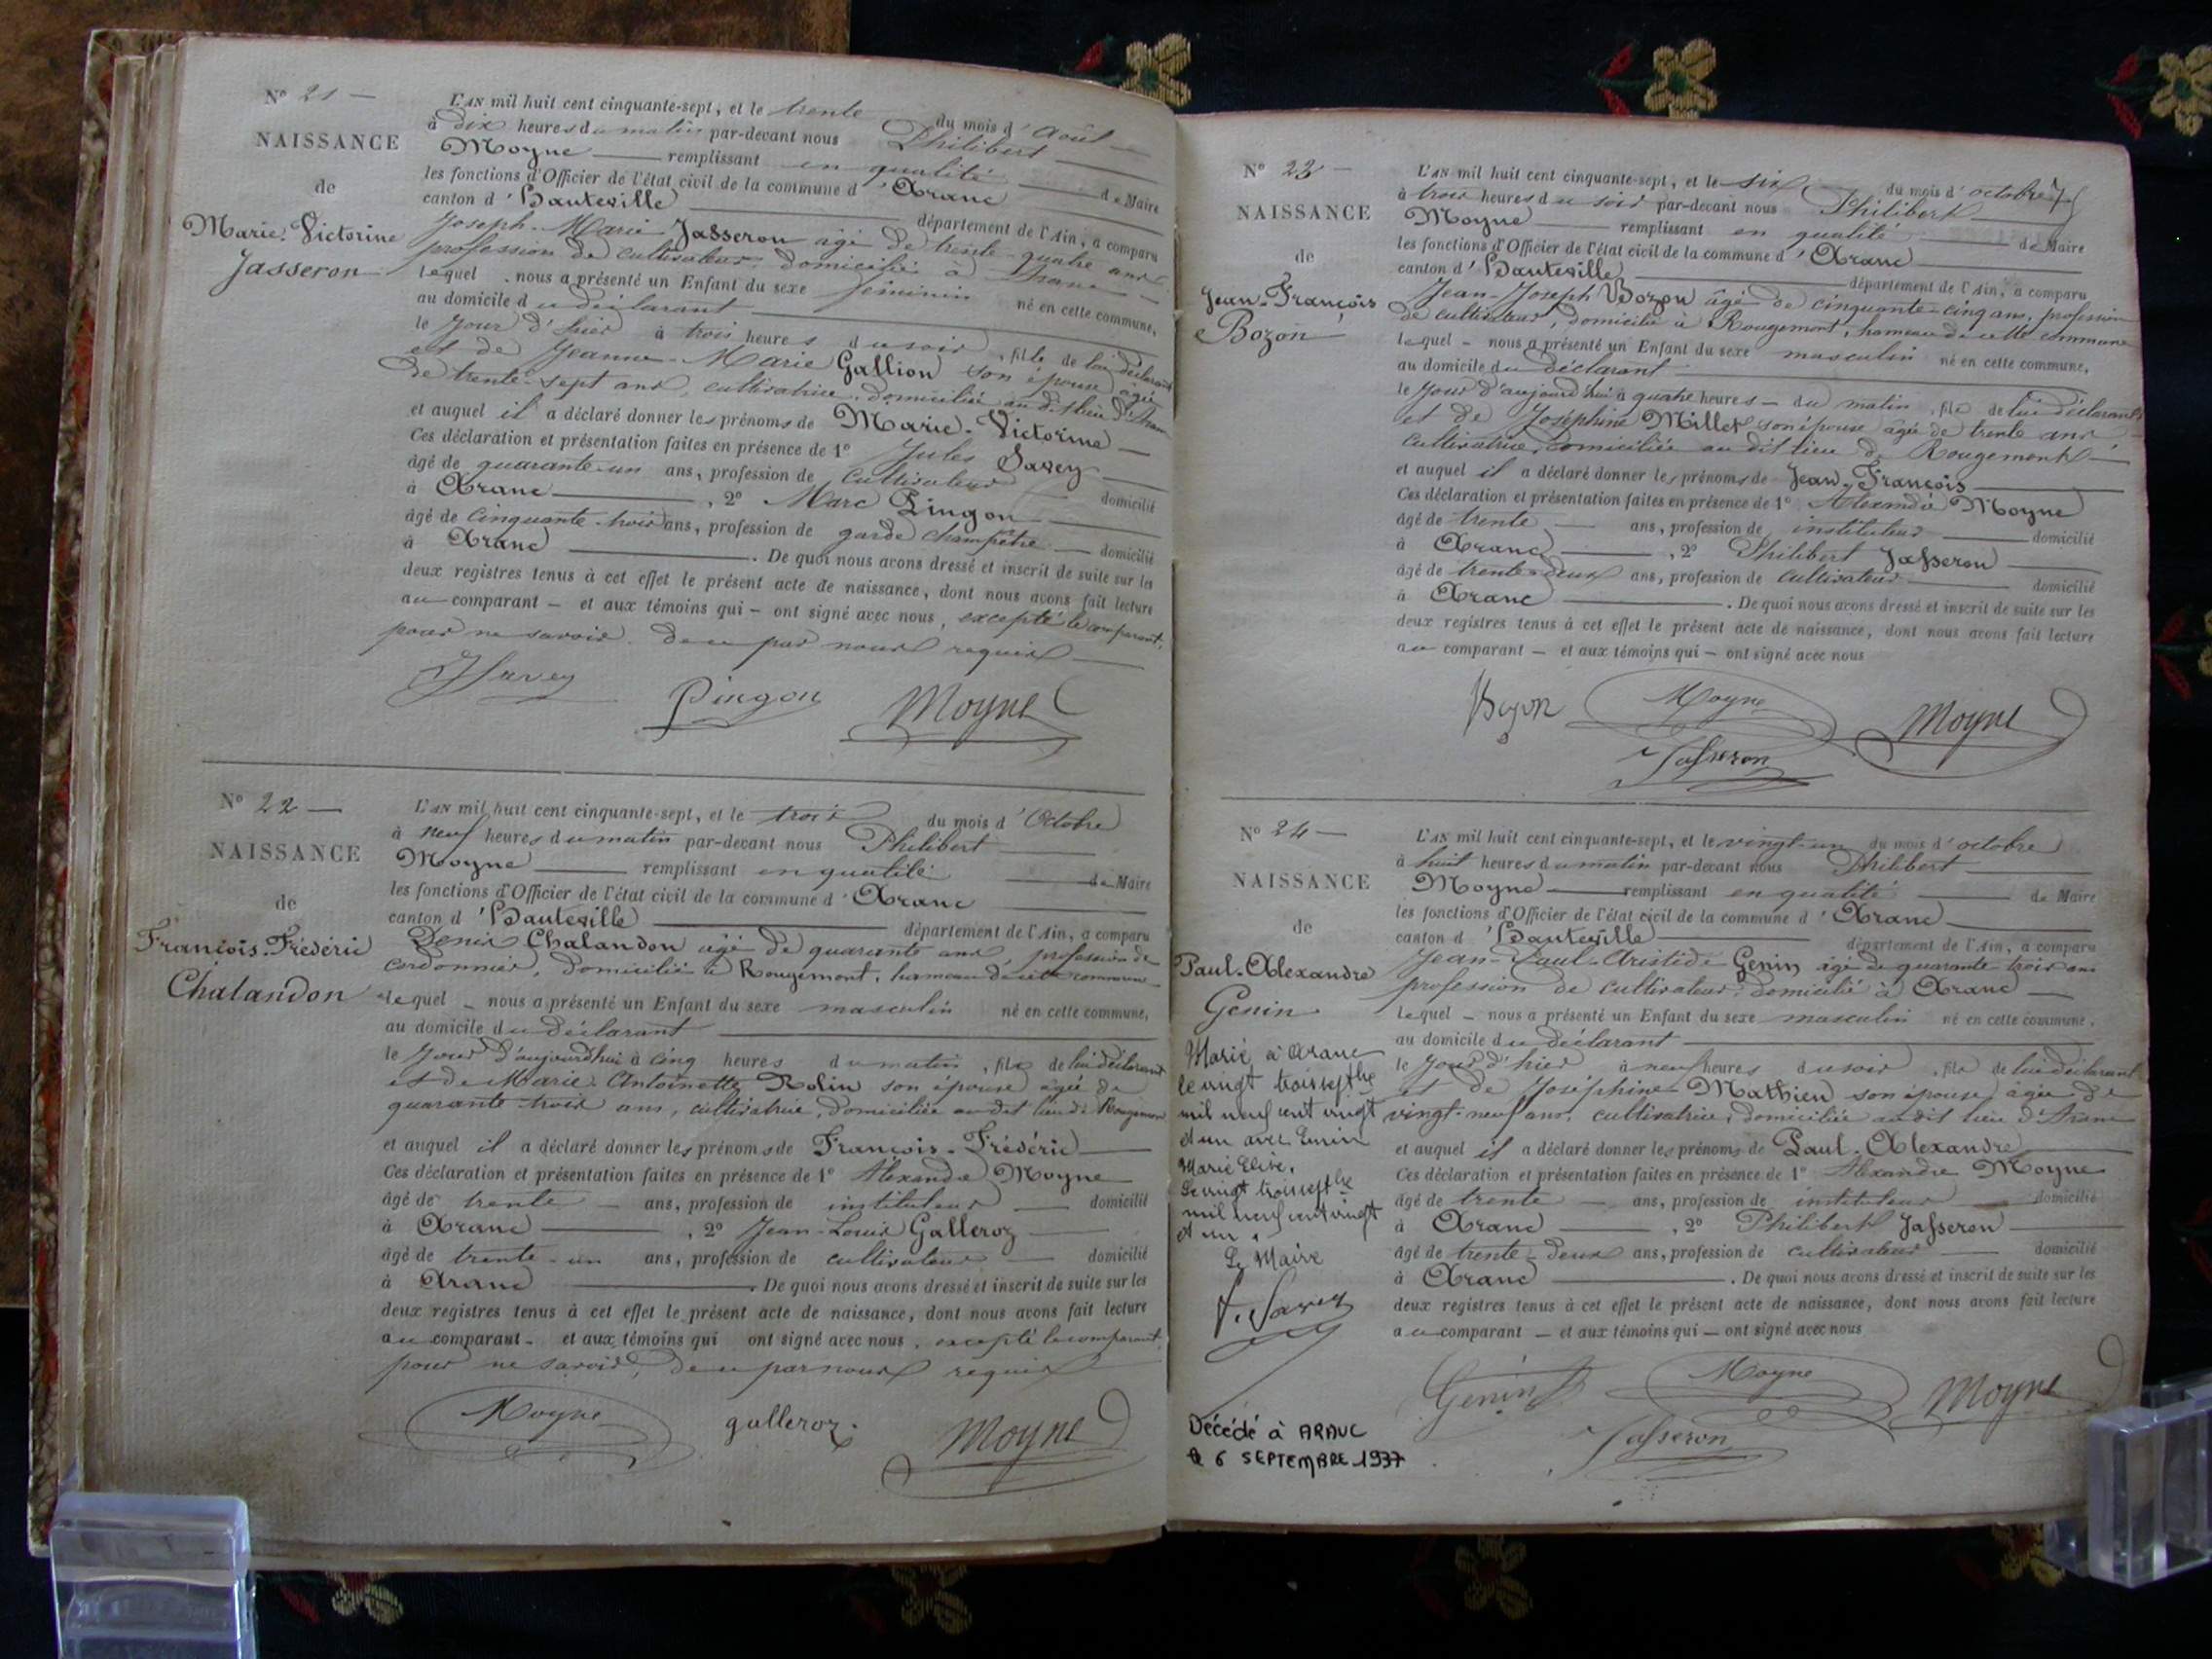 Nº 21 —
NAISSANCE
de
Marie-Victorine
Jasseron
L'AN mil huit cent cinquante-sept, et le trente du mois d'Août
à dix heures du matin par-devant nous Philibert
Moyne remplissant en qualité de Maire
les fonctions d'Officier de l'état civil de la commune d'Aranc
canton d'Hauteville département de l'Ain, a comparu
Joseph-Marie Jasseron âgé de trente-quatre ans
profession de cultivateur, domicilié à Aranc
lequel nous a présenté un Enfant du sexe féminin né en cette commune,
au domicile du déclarant
le jour d'hier à trois heures du soir, fille de lui déclarant
et de Jeanne-Marie Gallion son épouse âgée
de trente-sept ans, cultivatrice, domiciliée au dit lieu d'Aranc
et auquel il a déclaré donner les prénoms de Marie-Victorine
Ces déclaration et présentation faites en présence de 1º Jules Savey
âgé de quarante-un ans, profession de cultivateur domicilié
à Aranc, 2º Marc Pingon
âgé de cinquante-trois ans, profession de garde champêtre domicilié
à Aranc. De quoi nous avons dressé et inscrit de suite sur les
deux registres tenus à cet effet le présent acte de naissance, dont nous avons fait lecture
au comparant — et aux témoins qui — ont signé avec nous, excepté le comparant,
pour ne savoir, de ce par nous requis
JSavey Pingon Moyne
Nº 22 —
NAISSANCE
de
François-Frédéric
Chalandon
L'AN mil huit cent cinquante-sept, et le trois du mois d'Octobre
à neuf heures du matin par-devant nous Philibert
Moyne remplissant en qualité de Maire
les fonctions d'Officier de l'état civil de la commune d'Aranc
canton d'Hauteville département de l'Ain, a comparu
Denis Chalandon âgé de quarante ans, profession de
cordonnier, domicilié à Rougemont, hameau de cette commune
lequel — nous a présenté un Enfant du sexe masculin né en cette commune,
au domicile du déclarant
le jour d'aujourd'hui à cinq heures du matin, fils de lui déclarant
et de Marie-Antoinette Rolin son épouse âgée de
quarante-trois ans, cultivatrice, domiciliée au dit lieu de Rougemont
et auquel il a déclaré donner les prénoms de François-Frédéric
Ces déclaration et présentation faites en présence de 1º Alexandre Moyne
âgé de trente — ans, profession de instituteur domicilié
à Aranc, 2º Jean-Louis Galleroz
âgé de trente-un ans, profession de cultivateur domicilié
à Aranc. De quoi nous avons dressé et inscrit de suite sur les
deux registres tenus à cet effet le présent acte de naissance, dont nous avons fait lecture
au comparant — et aux témoins qui ont signé avec nous, excepté le comparant,
pour ne savoir, de ce par nous requis
Moyne galleroz. Moyne
Nº 23 —
NAISSANCE
de
Jean-François
Bozon
L'AN mil huit cent cinquante-sept, et le six du mois d'octobre
à trois heures du soir par-devant nous Philibert
Moyne remplissant en qualité de Maire
les fonctions d'Officier de l'état civil de la commune d'Aranc
canton d'Hauteville département de l'Ain, a comparu
Jean-Joseph Bozon âgé de cinquante-cinq ans, profession
de cultivateur, domicilié à Rougemont, hameau de cette commune
lequel — nous a présenté un Enfant du sexe masculin né en cette commune,
au domicile du déclarant
le jour d'aujourd'hui à quatre heures — du matin, fils de lui déclarant
et de Joséphine Millet son épouse âgée de trente ans
cultivatrice, domiciliée au dit lieu de Rougemont
et auquel il a déclaré donner les prénoms de Jean-François
Ces déclaration et présentation faites en présence de 1º Alexandre Moyne
âgé de trente — ans, profession de instituteur domicilié
à Aranc, 2º Philibert Jasseron
âgé de trente-deux ans, profession de cultivateur domicilié
à Aranc. De quoi nous avons dressé et inscrit de suite sur les
deux registres tenus à cet effet le présent acte de naissance, dont nous avons fait lecture
au comparant — et aux témoins qui — ont signé avec nous
Bozon Moyne Moyne
Jasseron
Nº 24 —
NAISSANCE
de
Paul-Alexandre
Genin
Marié à Aranc
le vingt trois septbre
mil neuf cent vingt
et un avec Genin
Marie Elise.
Le vingt trois septbre
mil neuf cent vingt
et un.
Le Maire
F. Savey
Décédé à ARANC
le 6 SEPTEMBRE 1937
L'AN mil huit cent cinquante-sept, et le vingt-un du mois d'octobre
à huit heures du matin par-devant nous Philibert
Moyne remplissant en qualité de Maire
les fonctions d'Officier de l'état civil de la commune d'Aranc
canton d'Hauteville département de l'Ain, a comparu
Jean-Paul-Aristide Genin âgé de quarante-trois ans
profession de cultivateur, domicilié à Aranc
lequel — nous a présenté un Enfant du sexe masculin né en cette commune,
au domicile du déclarant
le jour d'hier à neuf heures du soir, fils de lui déclarant
et de Joséphine Mathieu son épouse, âgée de
vingt-neuf ans, cultivatrice, domiciliée au dit lieu d'Aranc
et auquel il a déclaré donner les prénoms de Paul-Alexandre
Ces déclaration et présentation faites en présence de 1º Alexandre Moyne
âgé de trente — ans, profession de instituteur domicilié
à Aranc, 2º Philibert Jasseron
âgé de trente-deux ans, profession de cultivateur domicilié
à Aranc. De quoi nous avons dressé et inscrit de suite sur les
deux registres tenus à cet effet le présent acte de naissance, dont nous avons fait lecture
au comparant — et aux témoins qui — ont signé avec nous
Genin Moyne Moyne
Jasseron